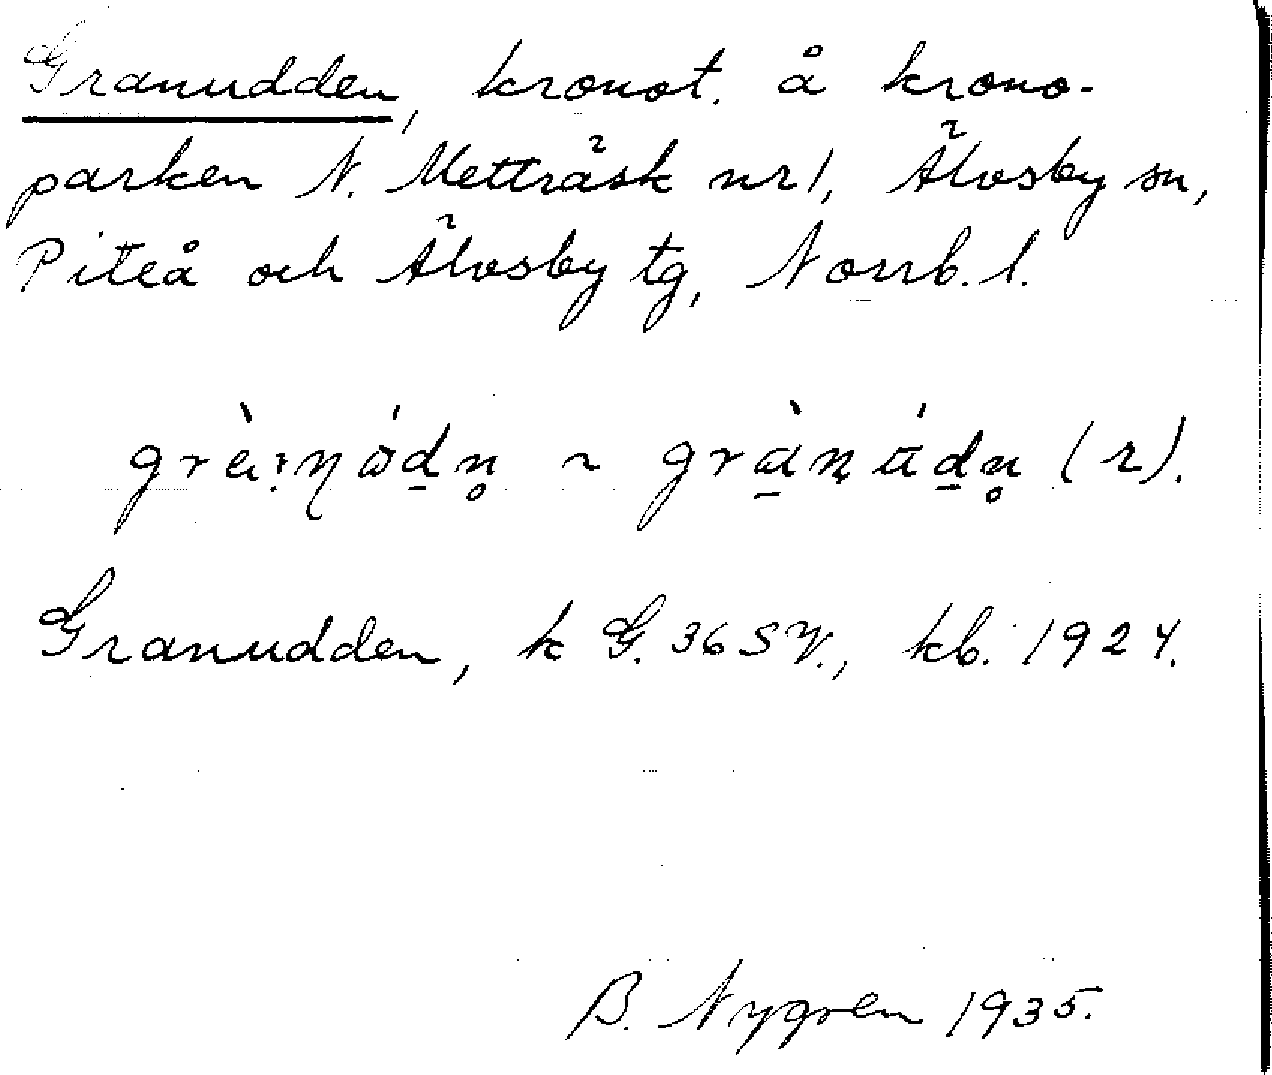 Granudden, kronot. å krono-
parken N. Metträsk nr 1, Älvsby sn,
Piteå och Älvsby tg, Norrb. l.
(r).
Granudden, k G. 36 SV., kb. 1924.
B. Nygren 1935.